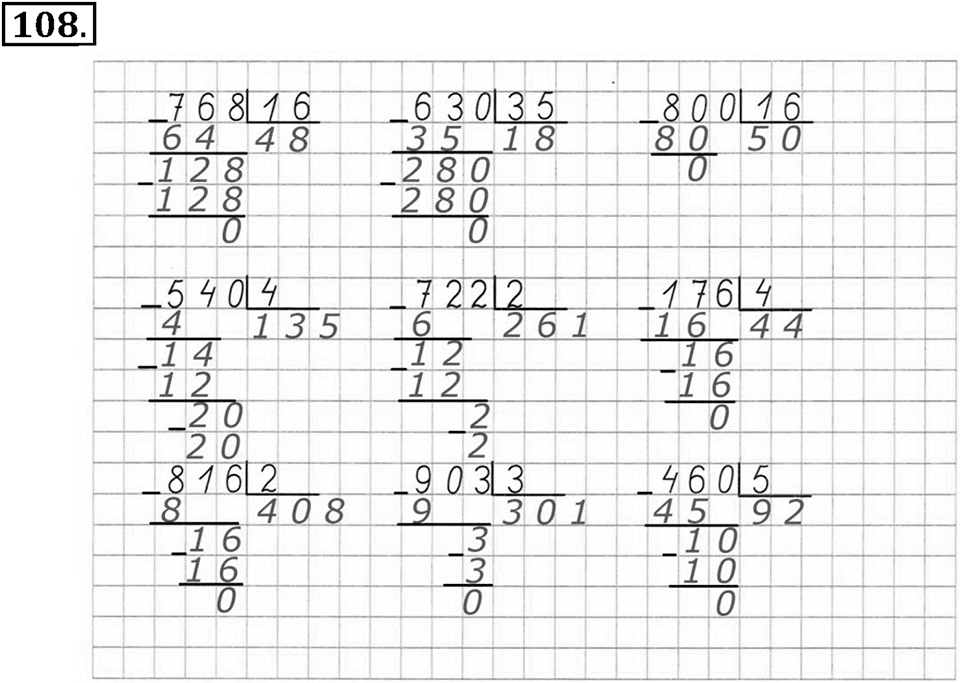 108.
768 16 630 35 800 16
64 48 35 18 80 50
128 280 0
128 280
0 0
540 4 722 2 176 4
4 135 6 261 16 44
14 12 16
12 12 16
20 2 0
20 2
816 2 903 3 460 5
8 408 9 301 45 92
16 3 10
16 3 10
0 0 0